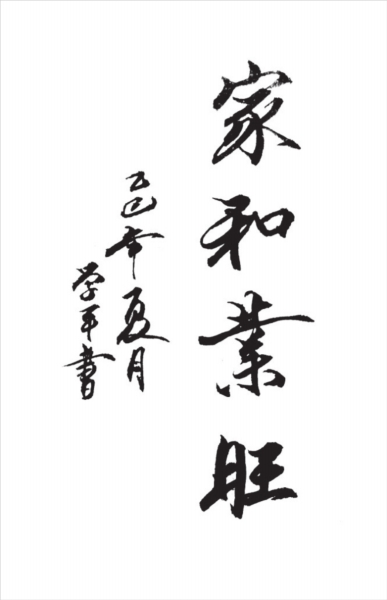 家和業旺
己丑年夏月
学平書